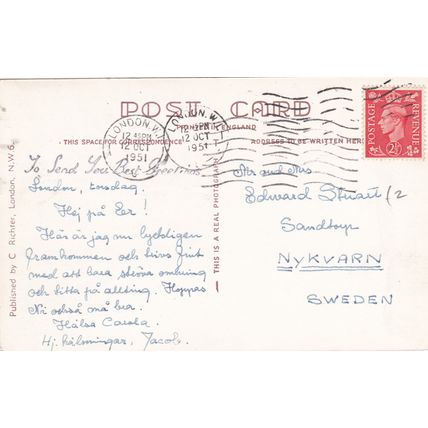 POST CARD
PRINTED IN ENGLAND
THIS SPACE FOR CORRESPONDENCE
ADDRESS TO BE WRITTEN HERE
LONDON. W.1
12 45PM
12 OCT
1951
LONDON. W.1
12 45PM
12 OCT
1951
POSTAGE
REVENUE
2½
To Send You Best Greetings
London, torsdag.
Hej på Er!
Här är jag nu lyckligen
framkommen och trivs fint
med att bara ströva omkring
och titta på allting. Hoppas
Ni också må bra.
Hälsa Carola.
Hj. hälsningar, Jacob.
Mr and Mrs
Edward Stuart
Sandtorp
NYKVARN
SWEDEN
THIS IS A REAL PHOTOGRAPH
Published by C. Richter, London, N.W.6.